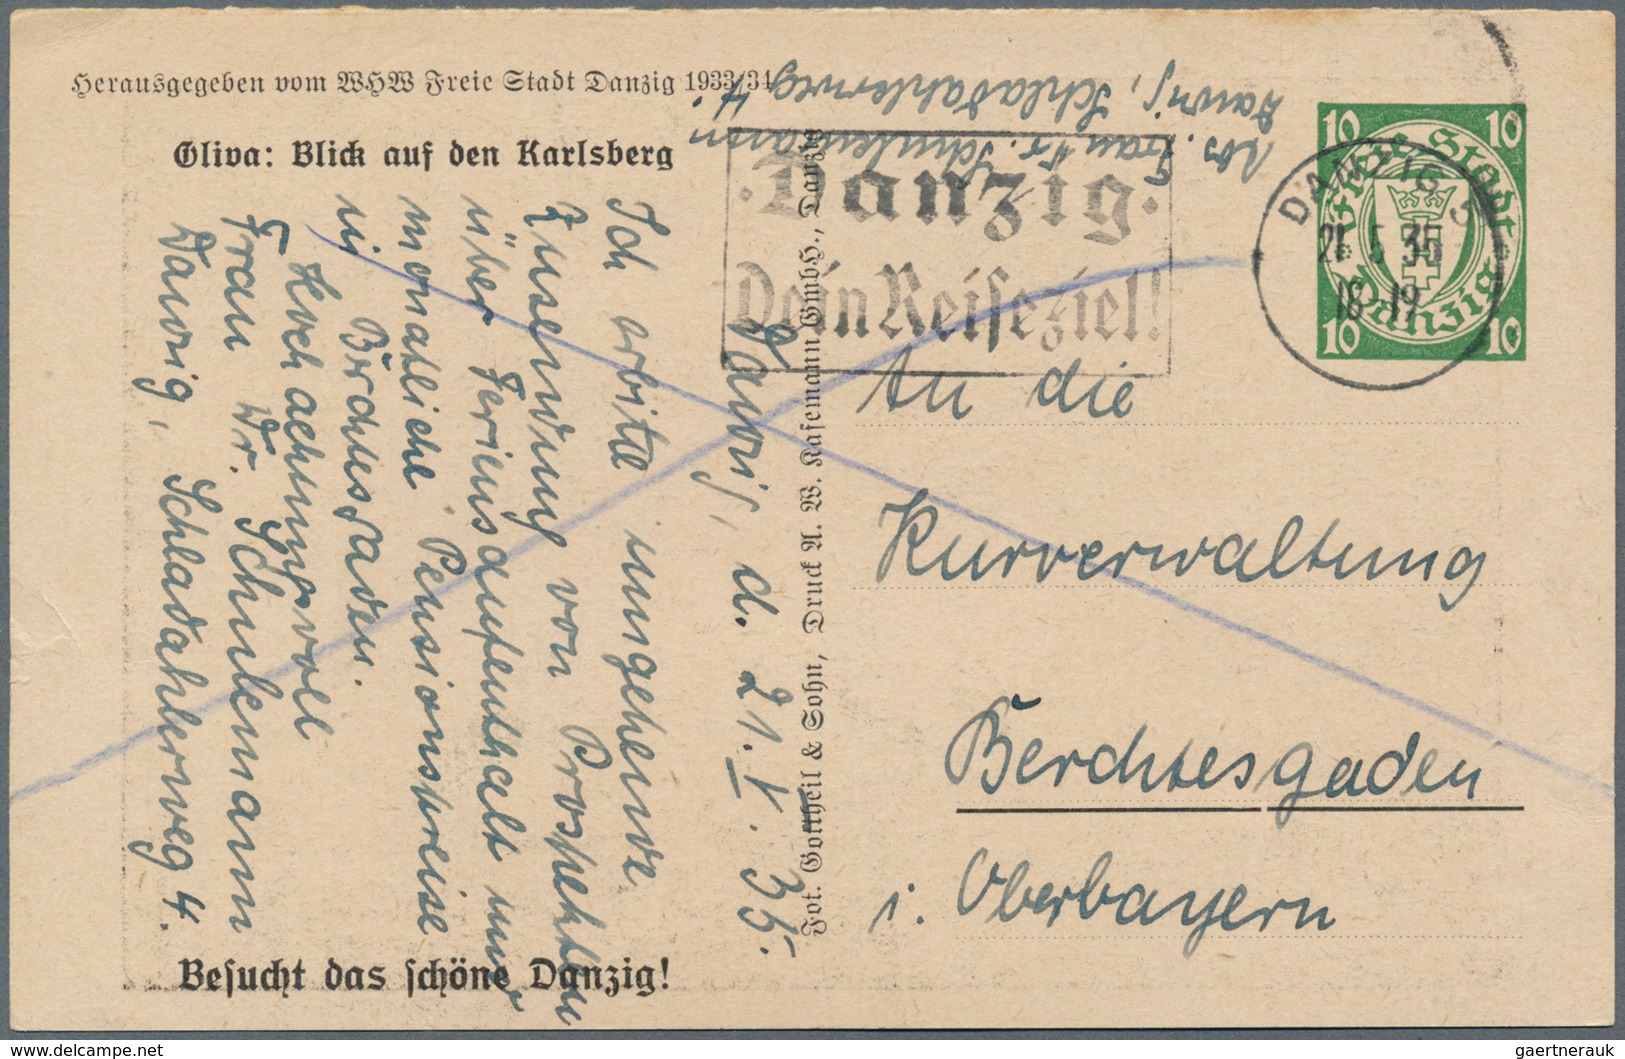 Herausgegeben vom WHW Freie Stadt Danzig 1933/34
Oliva: Blick auf den Karlsberg
Abs. Frau Dr. Schulemann
Danzig, Schladahlerweg 4.
Danzig
Dein Reiseziel!
10 10
Freie Stadt
Danzig
10 10
DANZIG 5
21 5 35
18-19
Danzig, d. 21. V. 35.
Ich erbitte umgehende
Zusendung von Prospekten
über Ferienaufenthalt und
monatliche Pensionspreise
in Berchtesgaden.
Hochachtungsvoll
Frau Dr. Schulemann
Danzig, Schladahlerweg 4.
Fot. Gottheil & Sohn, Druck A. W. Kafemann GmbH., Danzig
An die
Kurverwaltung
Berchtesgaden
i. Oberbayern
Besucht das schöne Danzig!
gaertnerauk
www.delcampe.net